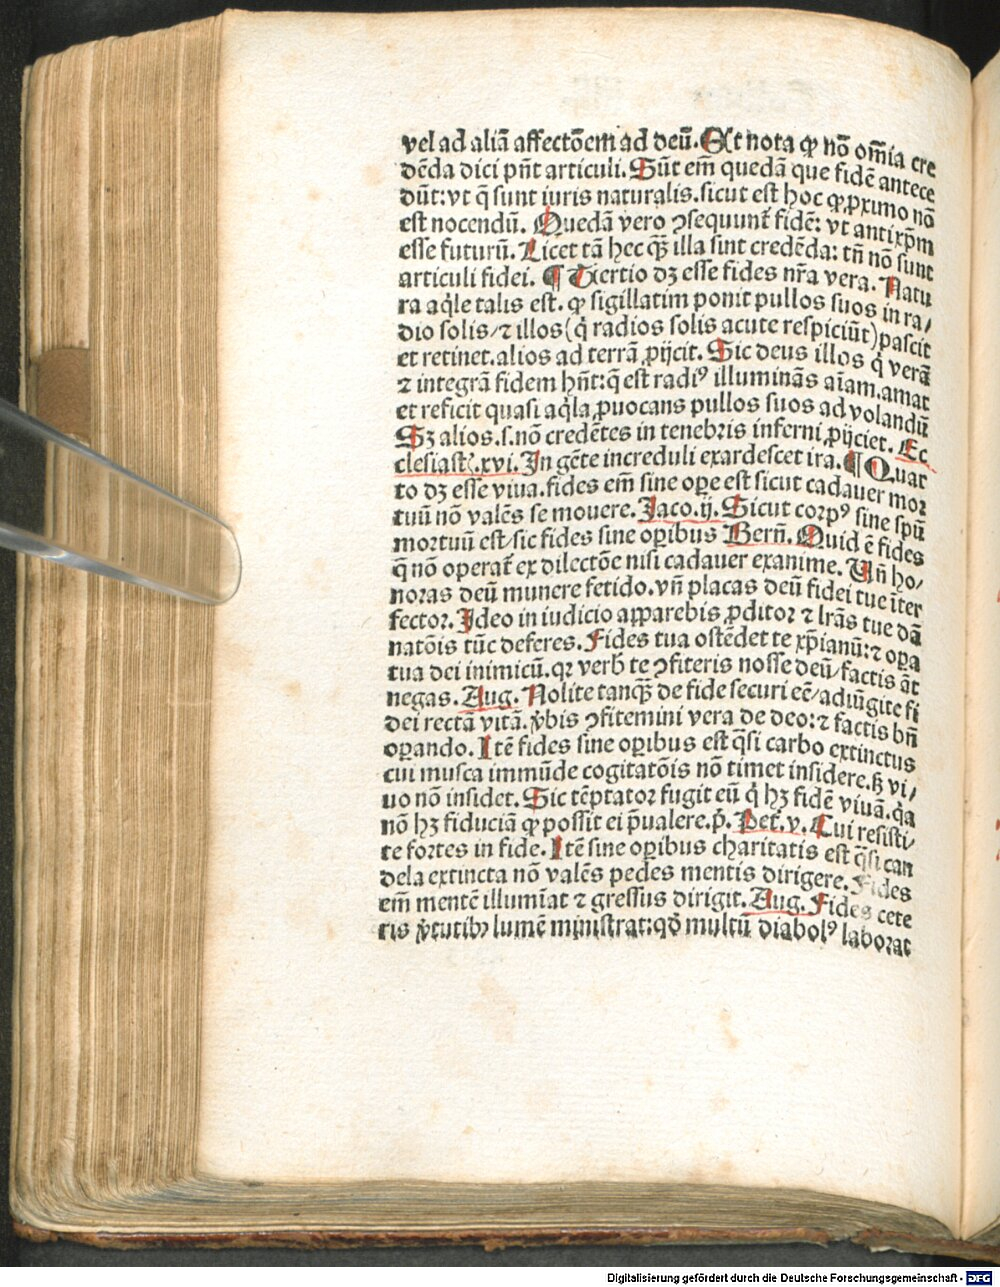 vel ad aliā affectōem ad deū. Et nota ꝙ nō om̄ia cre
dēda dici pn̄t articuli. Sūt em̄ quedā que fidē antece
dūt: vt q̄ sunt iuris naturalis. sicut est hoc ꝙ ꝓximo nō
est nocendū. Quedā vero ꝯsequunt̄ fidē: vt antixp̄m
esse futurū. Licet tā hec qꝫ̄ illa sint credēda: tn̄ nō sunt
articuli fidei. ¶ Tertio dꝫ esse fides nr̄a vera. Natu
ra aq̇le talis est. ꝙ sigillatim ponit pullos suos in ra/
dio solis/ ⁊ illos (q̇ radios solis acute respiciūt) pascit
et retinet. alios ad terrā ꝓijcit. Sic deus illos q̇ verā
⁊ integrā fidem hn̄t: q̄ est radiꝰ illuminās aīam. amat
et reficit quasi aq̇la ꝓuocans pullos suos ad volandū
Sꝫ alios .s. nō credētes in tenebris inferni ꝓijciet. Ec
clesiastꝭ. xvi. In gēte increduli exardescet ira. ¶ Quar
to dꝫ esse viua. fides em̄ sine oꝑe est sicut cadauer mor
tuū nō valēs se mouere. Jaco. ij. Sicut corpꝰ sine spū
mortuū est/ sic fides sine oꝑibus Bern̄. Quid ē fides
q̄ nō operat̄ ex dilectōe nisi cadauer exanime. Un̄ ho/
noras deū munere fetido. vn̄ placas deū fidei tue īter
fector. Ideo in iudicio apparebis ꝓditor ⁊ lr̄as tue dā
natōis tūc deferes. Fides tua ostēdet te xp̄ianū: ⁊ oꝑa
tua dei inimicū. qꝛ verb̄ te ꝯfiteris nosse deū/ factis āt
negas. Aug. Nolite tanqꝫ̄ de fide securi eē/ adiūgite fi
dei rectā vitā. v̇bis ꝯfitemini vera de deo: ⁊ factis bn̄
oꝑando. Itē fides sine oꝑibus est q̄si carbo extinctus
cui musca immūde cogitatōis nō timet insidere. sꝫ vi/
uo nō insidet. Sic tēptator fugit eū q̇ hꝫ fidē viuā. q̇a
nō hꝫ fiduciā ꝙ possit ei p̄ualere. p̄. Pet̄. v. Cui resisti/
te fortes in fide. Itē sine oꝑibus charitatis est q̄si can
dela extincta nō valēs pedes mentis dirigere. Fides
em̄ mentē illumīat ⁊ gressus dirigit. Aug. Fides cete
ris v̇tutibꝫ lumē ministrat: qd̄ multū diabolꝰ laborat
Digitalisierung gefördert durch die Deutsche Forschungsgemeinschaft - DFG